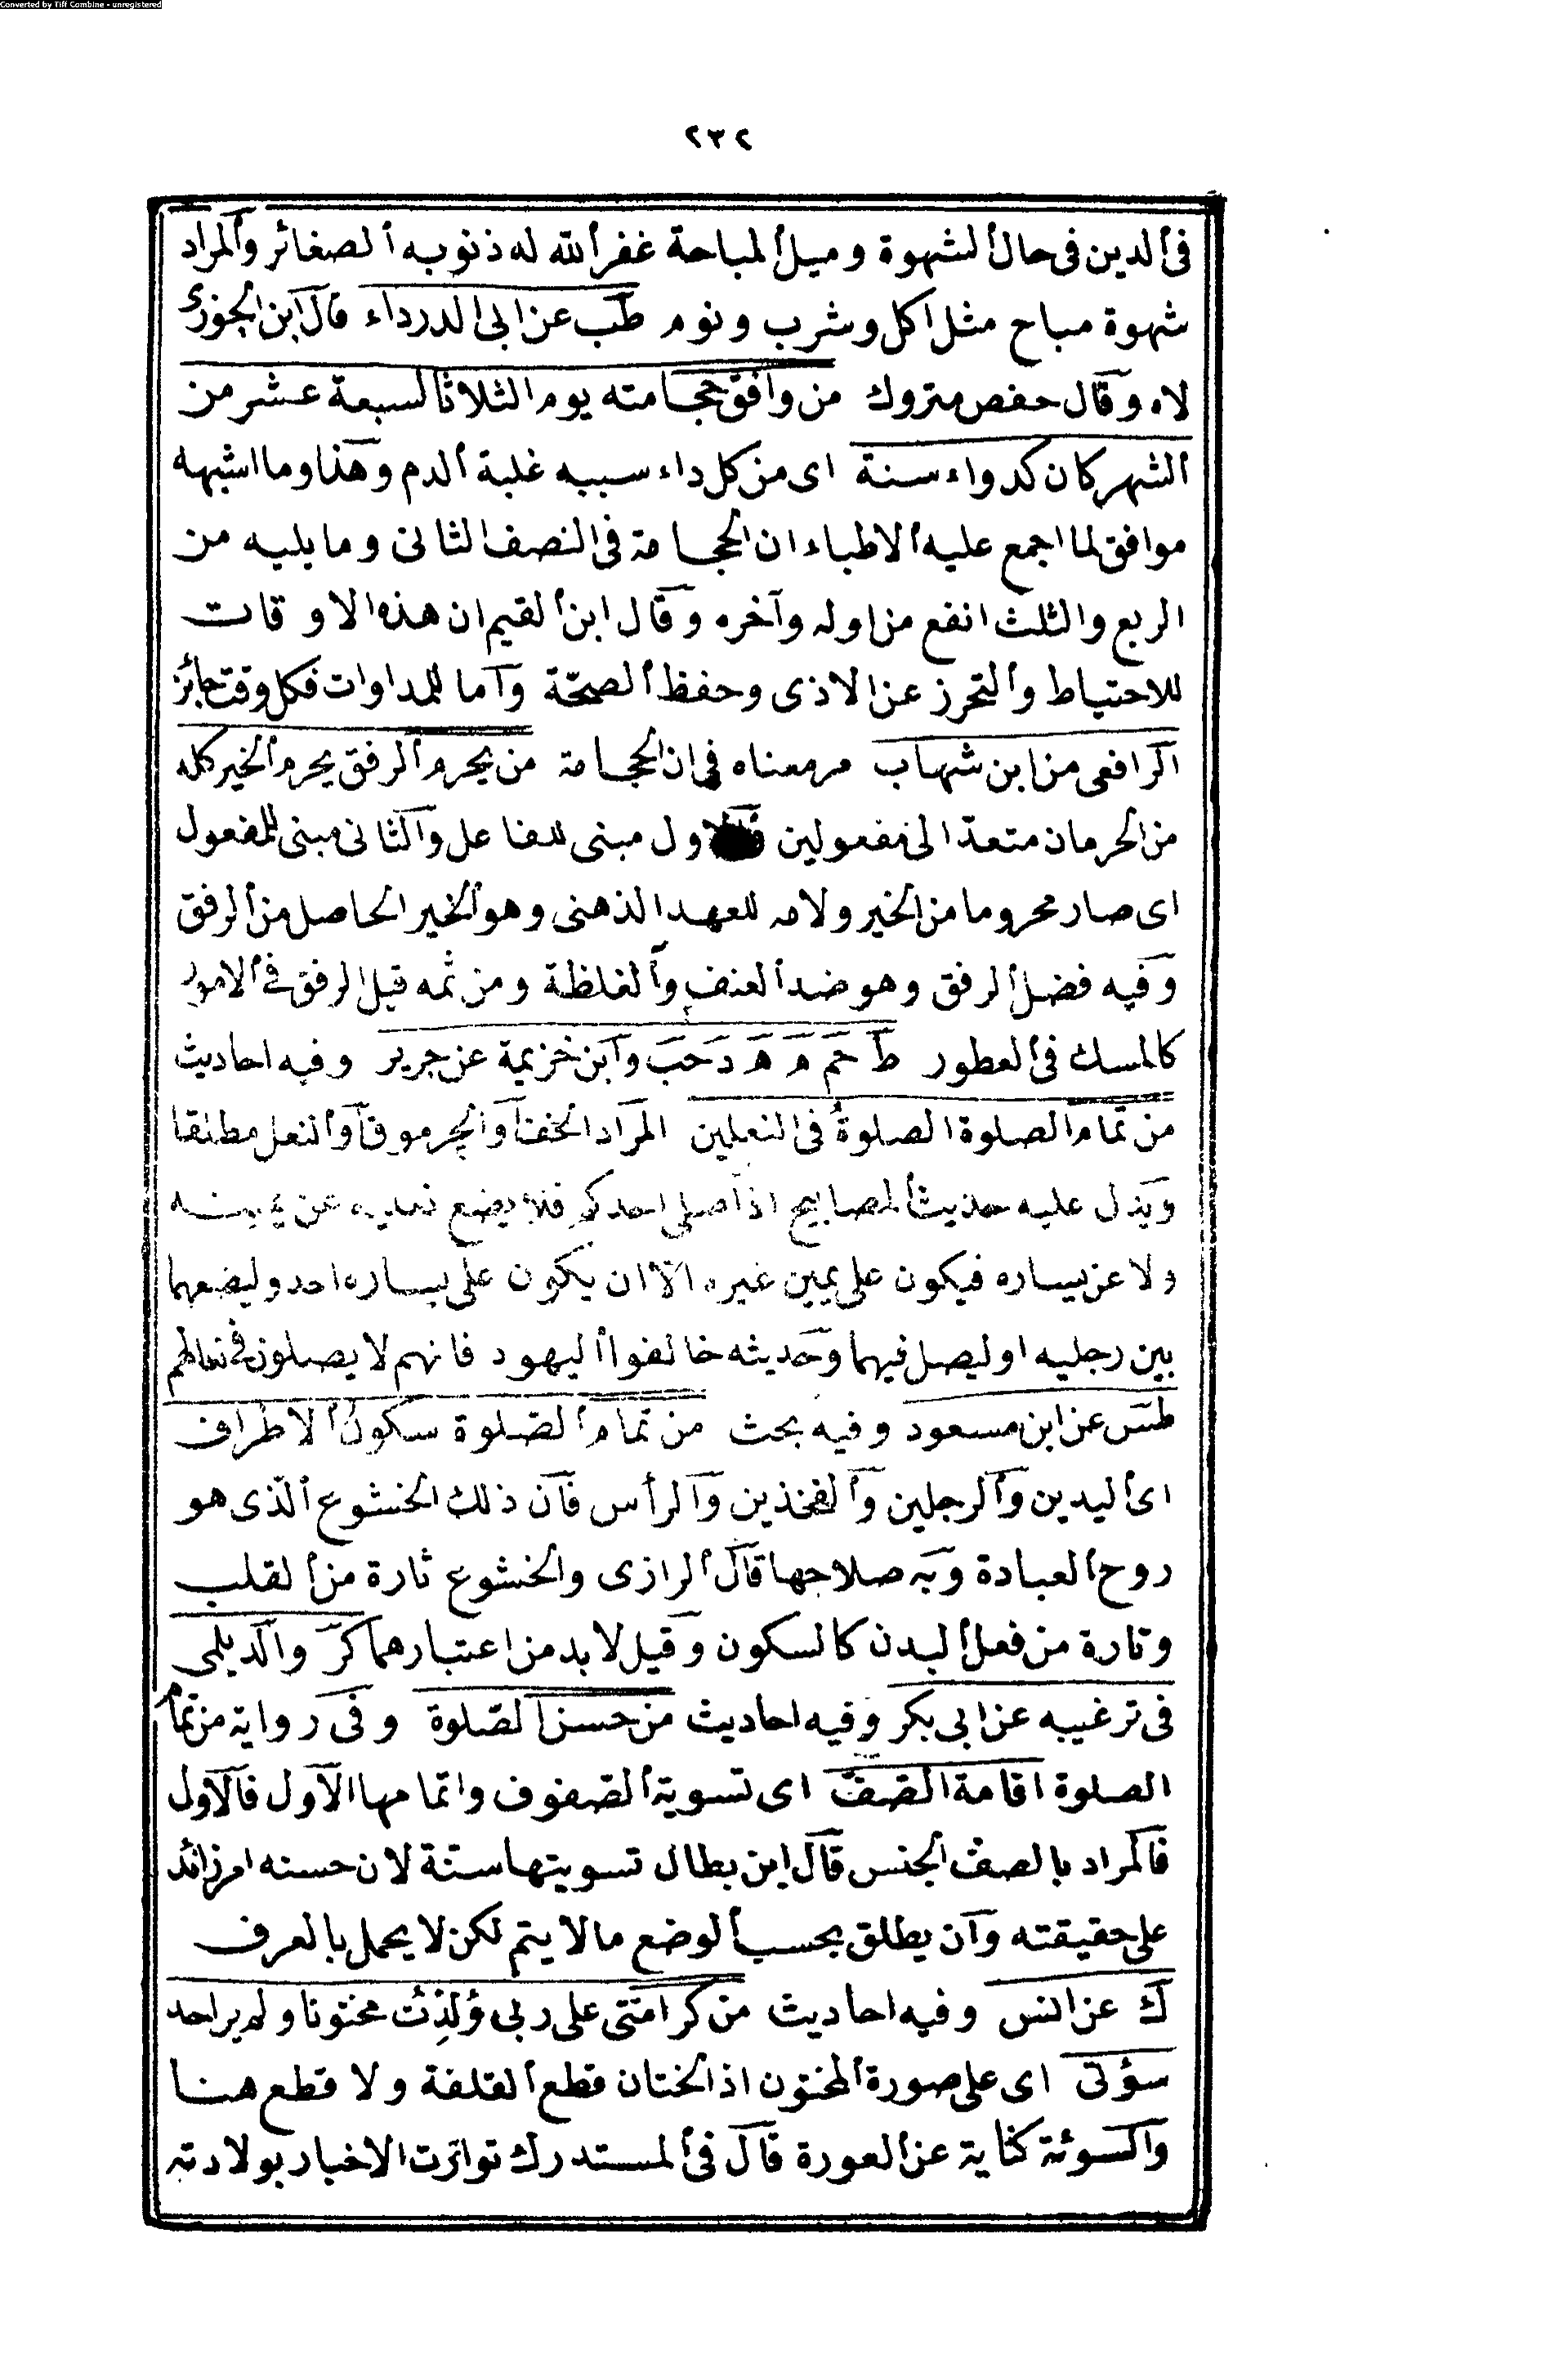 Converted by Tiff Combine - unregistered
٢٣٢
فى الدين فى حال الشهوة وميل المباحة غفر الله له ذنوبه الصغائر والمراد
شهوة مباح مثل اكل وشرب ونوم طب عن ابى الدرداء قال ابن الجوزى
لاه وقال حفص متروك من وافق حجامته يوم الثلاثا لسبعة عشر من
الشهر كان كدواء سنة اى من كل داء سببه غلبة الدم وهذا وما اشبهه
موافق لما اجمع عليه الاطباء ان الحجامة فى النصف الثانى وما يليه من
الربع والثلث انفع من اوله وآخره وقال ابن القيم ان هذه الاوقات
للاحتياط والتحرز عن الاذى وحفظ الصحّة واما للمداوات فكل وقت جائز
الرافعى من ابن شهاب مر معناه فى ان الحجامة من يحرم الرفق يحرم الخير كله
من الحرمان متعد الى مفعولين فالاول مبنى للفاعل والثانى مبنى للمفعول
اى صار محروما من الخير ولامه للعهد الذهنى وهو الخير الحاصل من الرفق
وفيه فضل الرفق وهو ضد العنف والغلظة ومن ثمه قيل الرفق فى الامور
كالمسك فى العطور ط حم م ه د حب وابن خزيمة عن جرير وفيه احاديث
من تمام الصلوة الصلوةُ فى النعلين المراد الخف او الجرموق او النعل مطلقا
ويدل عليه حديث المصابيح اذا صلى احدكم فلا يضع نعليه عن يمينه
ولا عن يساره فيكون على يمين غيره الّا ان يكون على يساره احد وليضعهما
بين رجليه او ليصل فيهما وحديثه خالفوا اليهود فانهم لا يصلون فى نعالهم
طس عن ابن مسعود وفيه بحث من تمام الصّلوة سكونُ الاطراف
اى اليدين والرجلين والفخذين والرأس فان ذلك الخشوع الّذى هو
روح العبادة وبه صلاحها قال الرازى والخشوع تارة من القلب
وتارة من فعل البدن كالسكون وقيل لابد من اعتبارهما كر والديلمى
فى ترغيبه عن ابى بكر وفيه احاديث من حسن الصّلوة وفى رواية من تمام
الصلوة اقامة الصّفّ اى تسوية الصّفوف واتمامها الاول فالاول
فالمراد بالصف الجنس قال ابن بطال تسويتها سنّة لان حسنه امر زائد
على حقيقته وان يطلق بحسب الوضع ما لا يتم لكن لا يحمل بالعرف
ك عن انس وفيه احاديث من كرامتى على ربى وُلِدْتُ مختونا ولم ير احد
سؤتى اى على صورة المختون اذ الختان قطع القلفة ولا قطع هنا
والسوئة كناية عن العورة قال فى المستدرك تواترت الاخبار بولادته